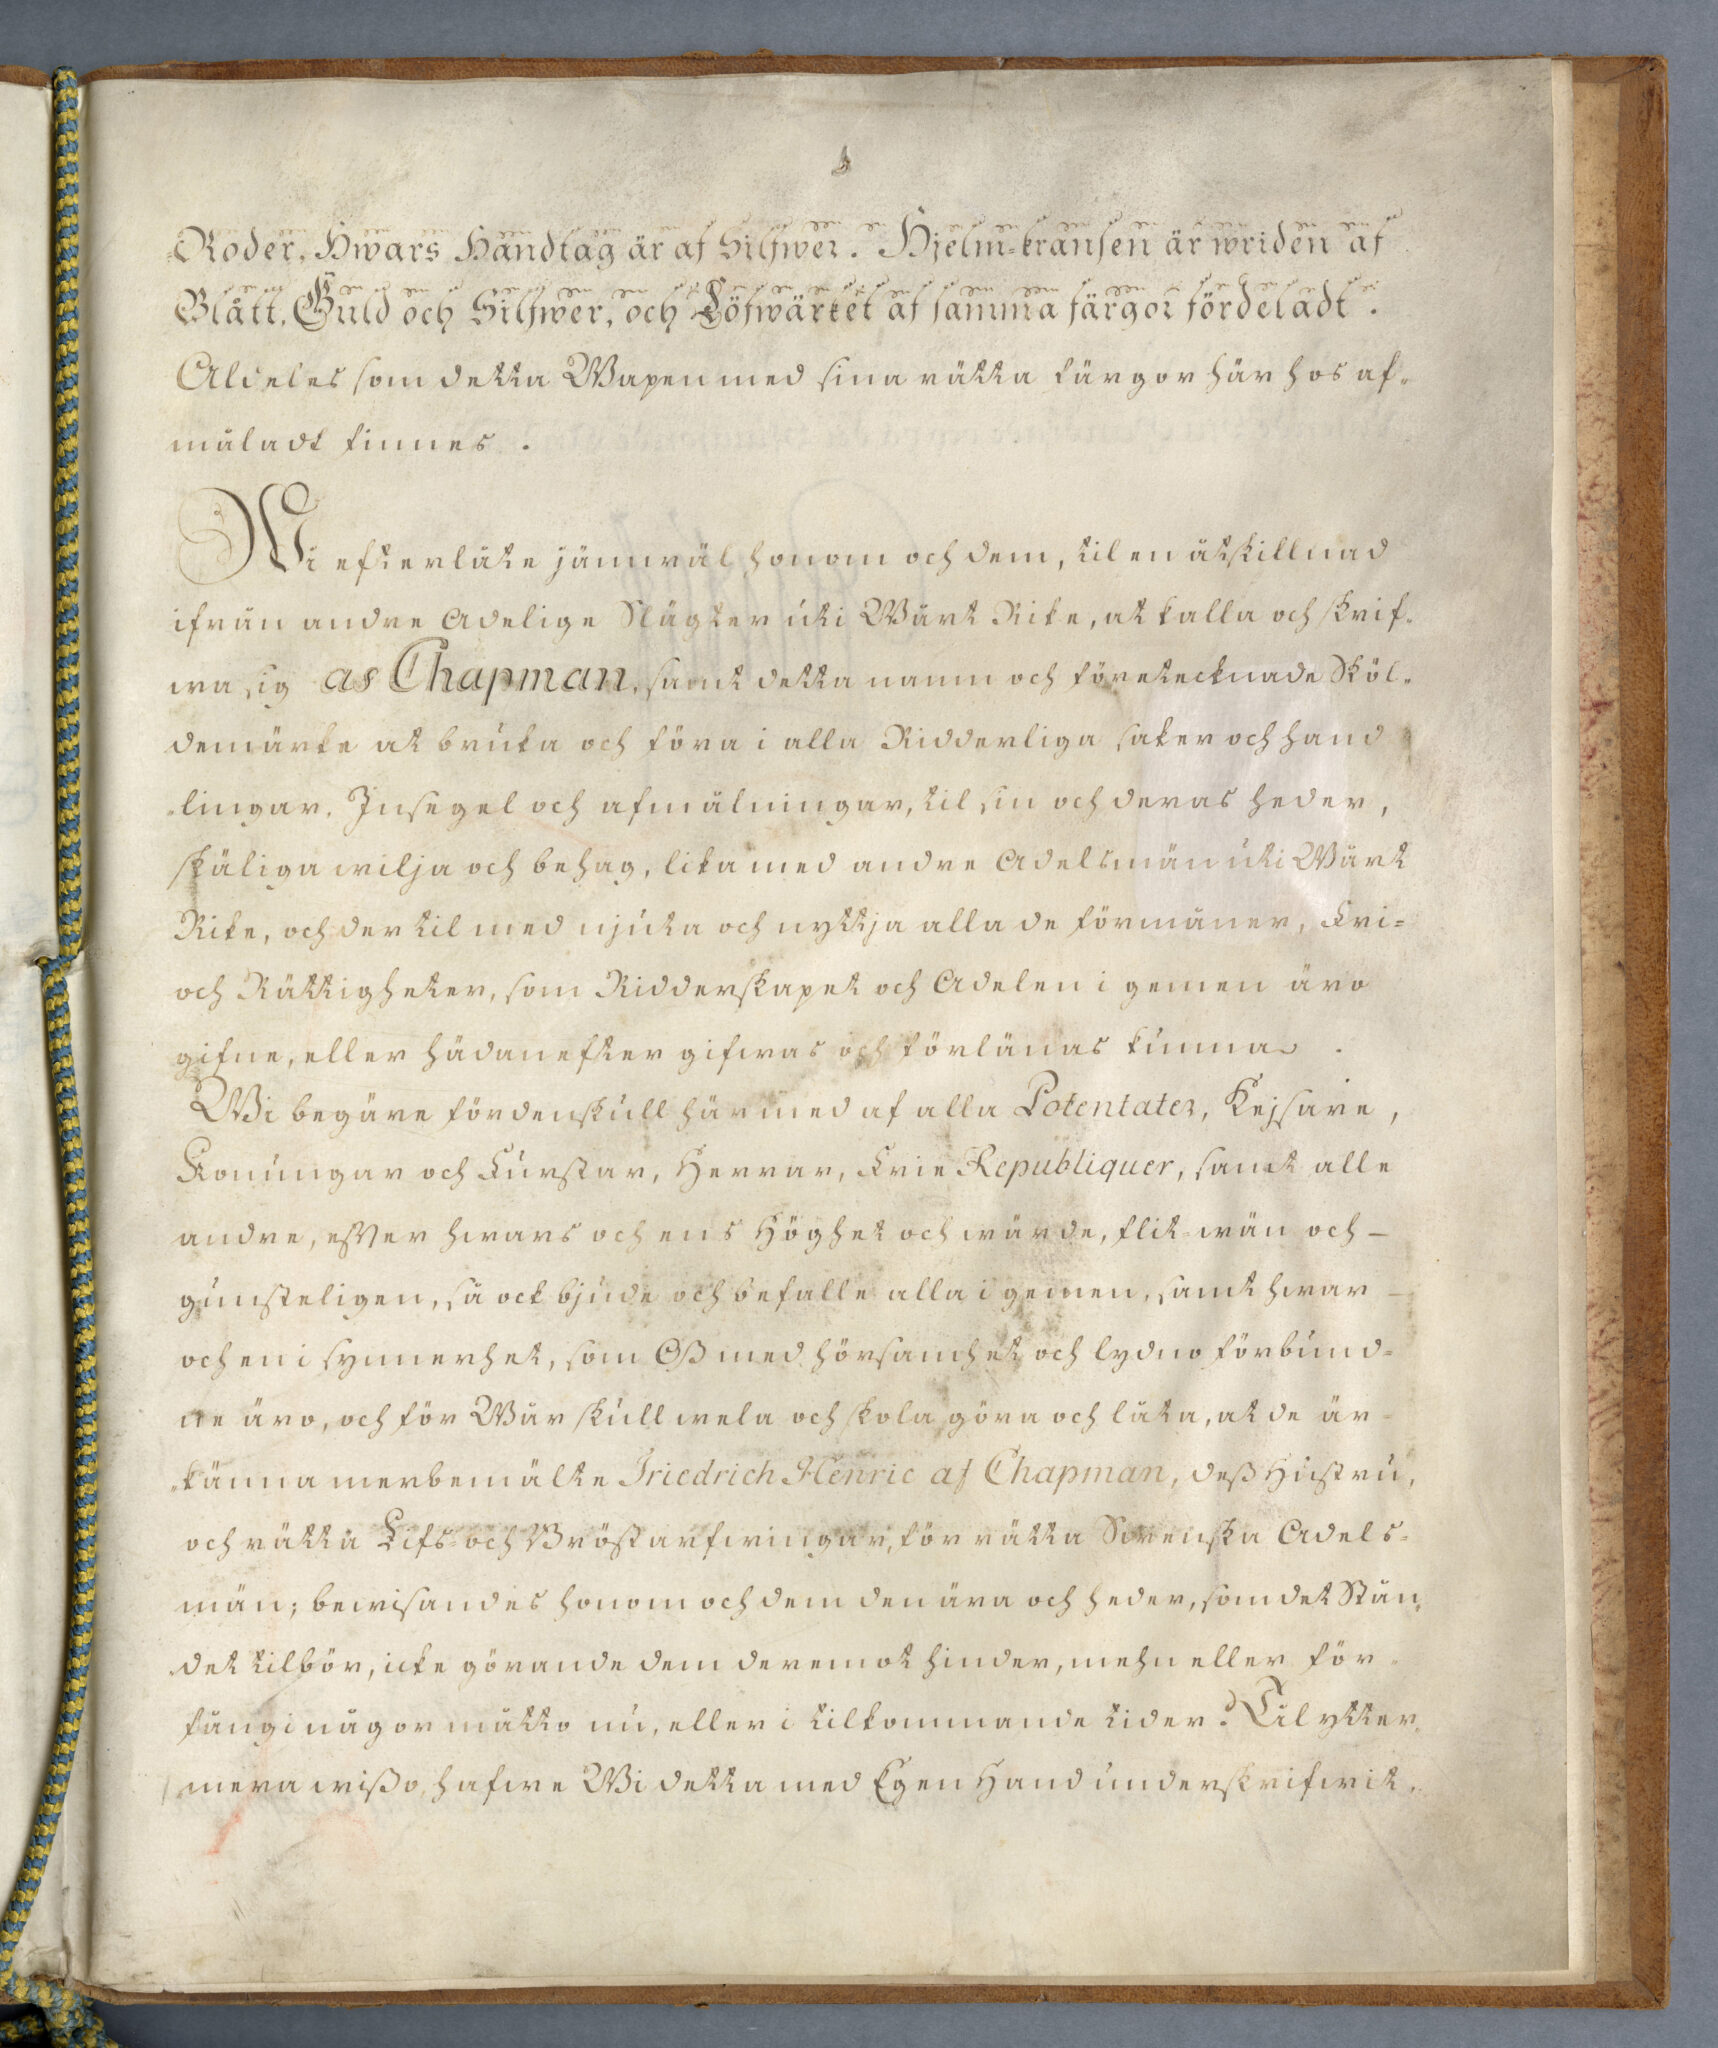 Roder, Hwars Handtag är af Silfwer. Hjelm-kransen är wriden af
Blått, Guld och Silfwer, och Löfwärket af samma färgor fördeladt.
Aldeles som detta Wapen med sina rätta färgor här hos af-
måladt finnes.
Wi efterlåte jämwäl honom och dem, til en åtskillnad
ifrån andre Adelige Slägter uti Wårt Rike, at kalla och skrif-
wa sig af Chapman, samt detta namn och företecknade Sköl-
demärke at bruka och föra i alla Ridderliga saker och hand
-lingar, Insegel och afmålningar, til sin och deras heder,
skäliga wilja och behag, lika med andre Adelsmän uti Wårt
Rike, och der til med njuta och nyttja alla de förmåner, Fri-
och Rättigheter, som Ridderskapet och Adelen i gemen äro
gifne, eller hädanefter gifwas och förlänas kunna.
Wi begäre fördenskull härmed af alla Potentater, Kejsare,
Konungar och Furstar, Herrar, Frie Republiquer, samt alle
andre, efter hwars och ens Höghet och wärde, flit-wän och-
gunsteligen, så ock bjude och befalle alla i gemen, samt hwar-
och en i synnerhet, som Oß med hörsamhet och lydno förbund-
ne äro, och för Wår skull wela och skola göra och låta, at de är-
-känna merbemälte Friedrich Henric af Chapman, deß Hustru,
och rätta Lifs- och Bröstarfwingar, för rätta Swenska Adels-
män; bewisandes honom och dem den ära och heder, som det Stån-
det tilbör, icke görande dem deremot hinder, mehn eller för-
fång i någor måtto nu, eller i tilkommande tider. Til ytter-
mera wißo, hafwe Wi detta med Egen Hand underskrifwit,